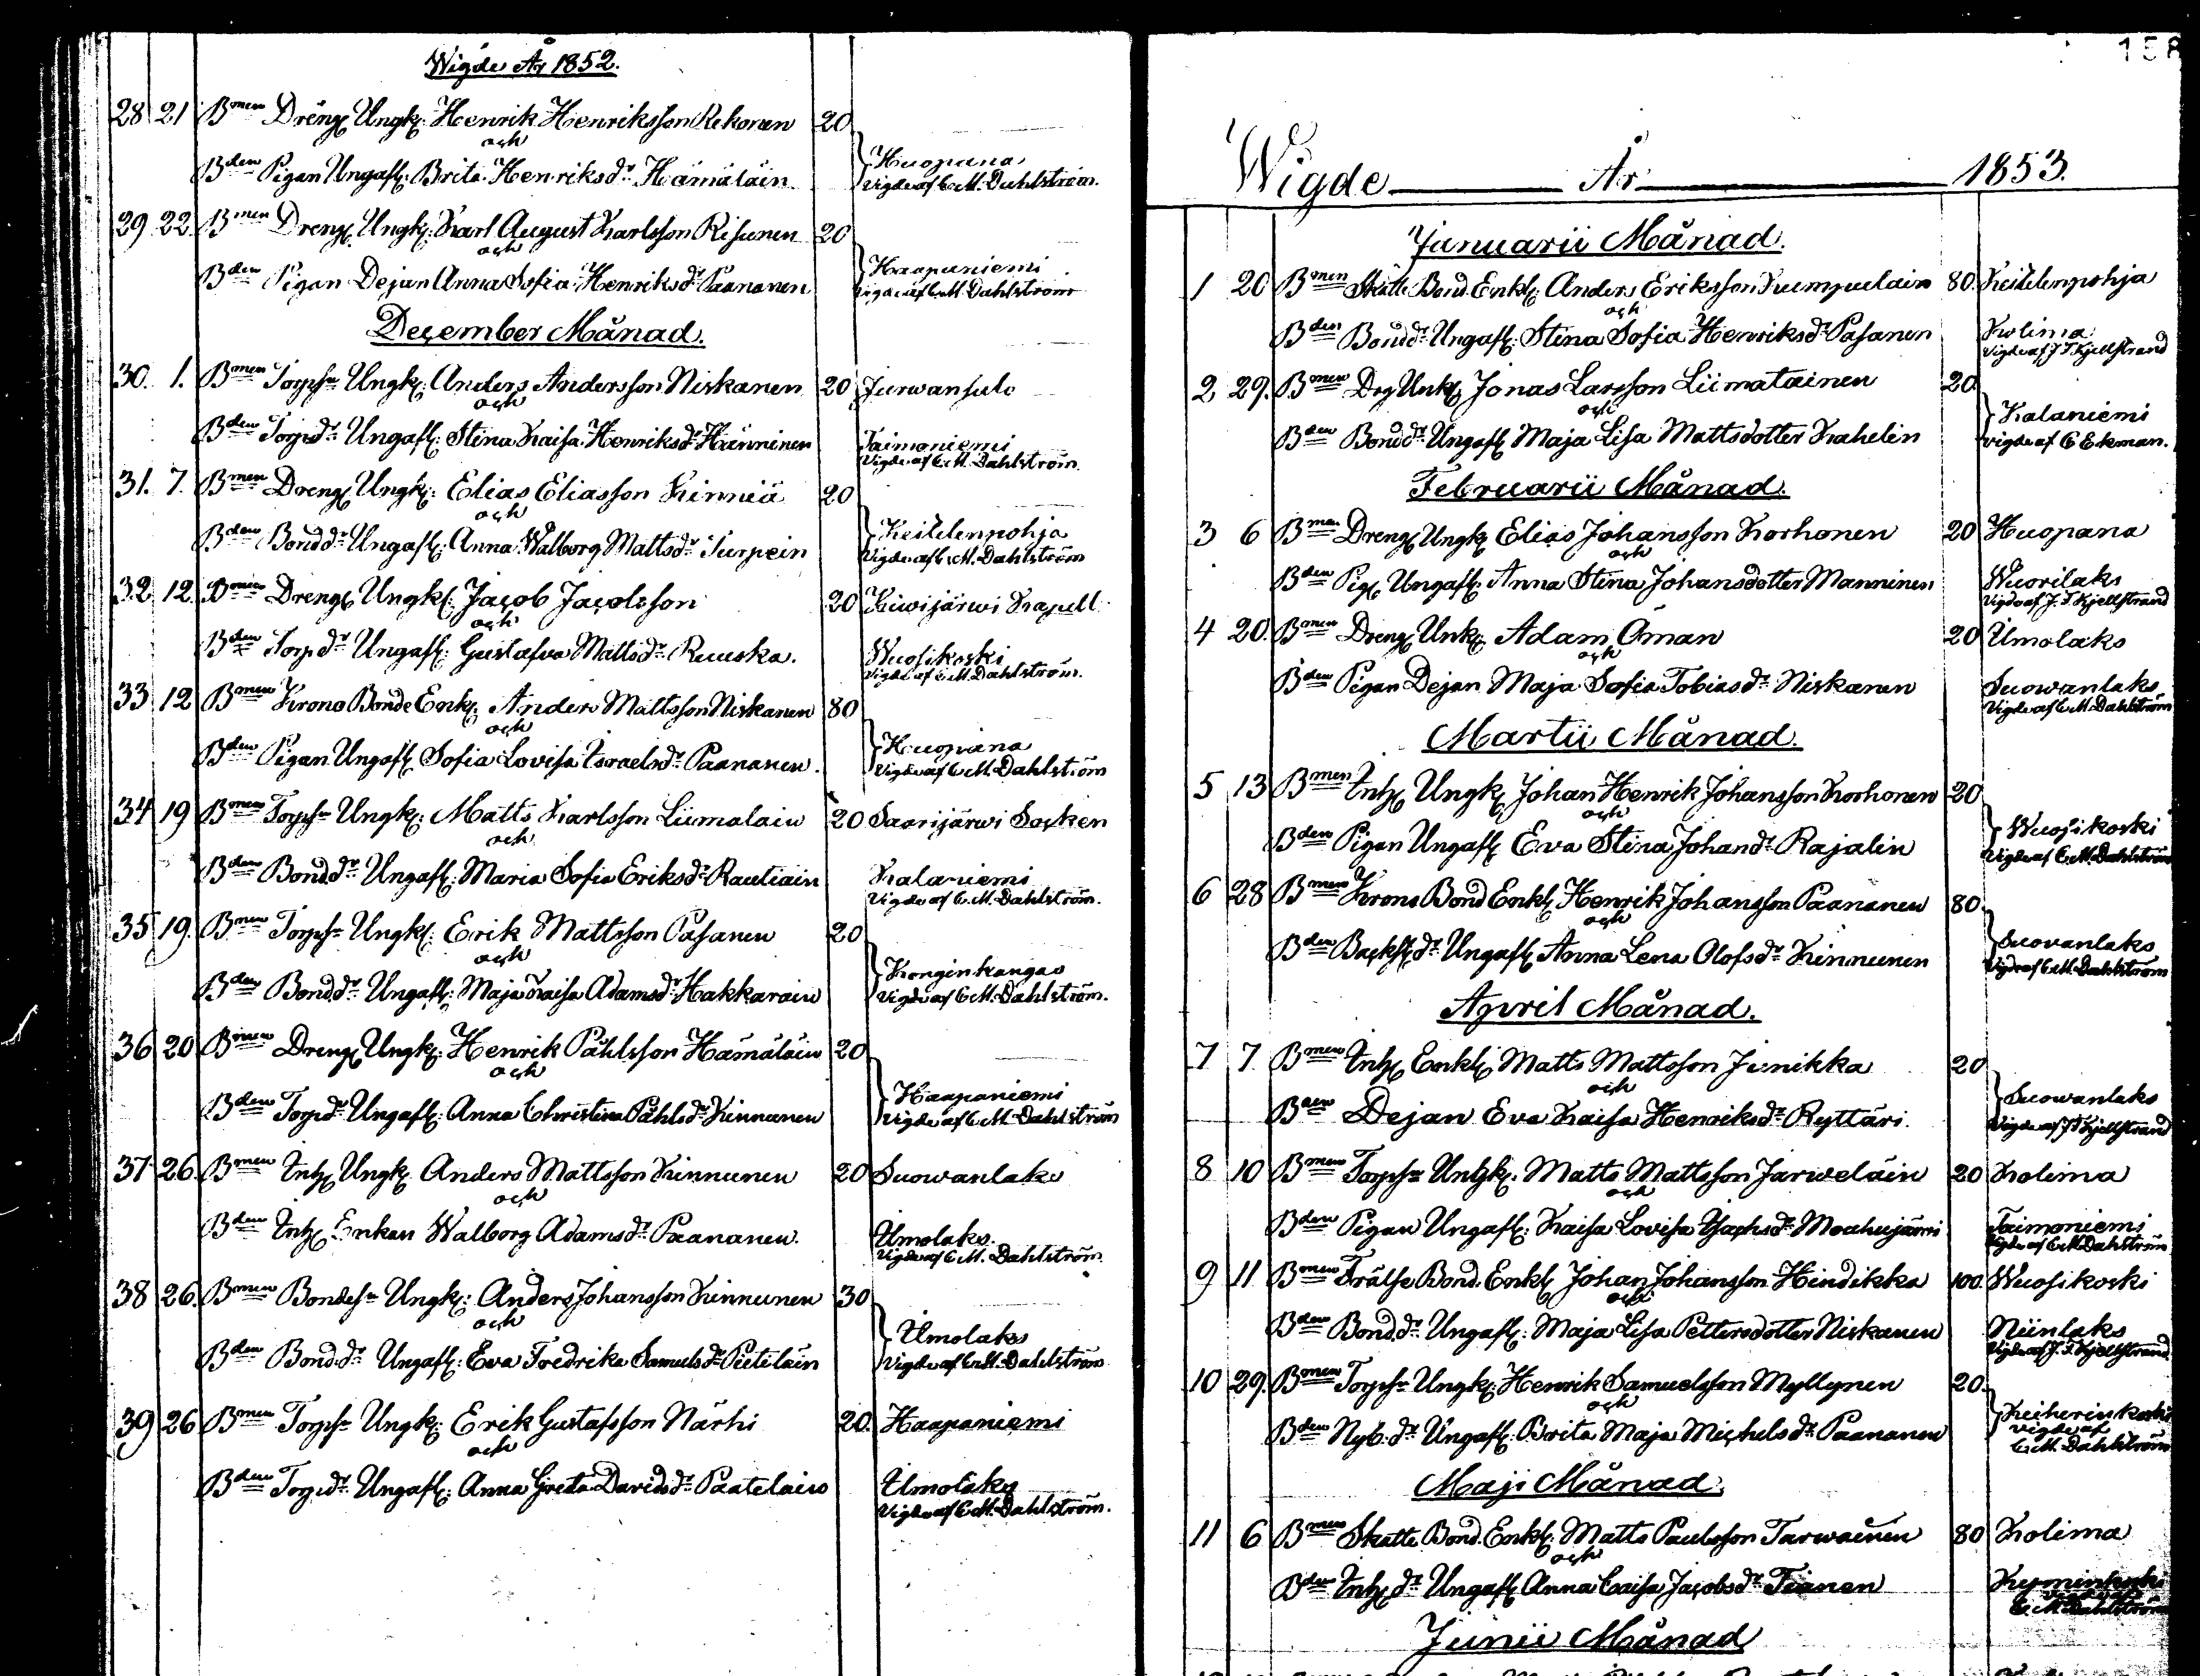 Wigde År 1852.
28 21 Bmen Dräng Ungk: Henrik Henriksson Rekonen 20
och
Bden Pigan Ungafl: Brita Henriksdr Hämäläin
Huopana
Vigde af C. M. Dahlström.
29 22 Bmen Dreng Ungk: Karl August Karlsson Risunen 20
och
Bden Pigan Dejan Anna Sofia Henriksdr Paananen
Haapaniemi
Vigde af C. M. Dahlström
December Månad.
30. 1. Bmen Torpsn Ungk: Anders Andersson Niskanen 20
och
Bden Torpdr Ungafl: Stina Kaisa Henriksdr Hänninen
Taimoniemi
Vigde af C. M. Dahlström
31. 7. Bmen Dreng Ungk: Elias Eliasson Kinniä 20
och
Bden Bonddr Ungafl: Anna Walborg Mattsdr Turpein
Keitelenpohja
Vigde af C. M. Dahlström
32 12 Bmen Dreng Ungk: Jacob Jacobsson 20 Kiwijärwi Kapell
och
Bden Torpdr Ungafl: Gustafva Mattsdr Ruuska.
Wuosikoski
Vigde af C. M. Dahlström.
33 12 Bmen Krono Bonde Enk: Anders Mattsson Niskanen 80
och
Bden Pigan Ungafl Sofia Lovisa Israelsdr Paananen.
Huopana
Vigde af C. M. Dahlström
34 19 Bmen Torpsn Ungk: Matts Karlsson Liimatain 20 Saarijärwi Socken
och
Bden Bonddr Ungafl: Maria Sofia Eriksdr Rautiain
Kalaniemi
Vigde af C. M. Dahlström.
35 19. Bmen Torpsn Ungk: Erik Mattsson Pasanen 20
och
Bden Bonddr Ungafl: Maja Kaisa Adamsdr Hakkarain
Konginkangas
Vigde af C. M. Dahlström.
36 20 Bmen Dreng Ungk: Henrik Påhlsson Hämäläin 20
och
Bden Torpdr Ungafl: Anna Christina Påhlsdr Kinnunen
Haapaniemi
Vigde af C. M. Dahlström
37 26 Bmen Inh Ungk Anders Mattsson Kinnunen 20 Suowanlaks
och
Bden Inh Enkan Walborg Adamsdr Paananen.
Ilmolaks.
Vigde af C. M. Dahlström
38 26. Bmen Bondesn Ungk: Anders Johansson Kinnunen 30
och
Bden Bonddr Ungafl: Eva Fredrika Samuelsdr Pietiläin
Ilmolaks
Vigde af C. M. Dahlström
39 26 Bmen Torpsn Ungk: Erik Gustafsson Närhi 20. Haapaniemi
och
Bden Torpdr Ungafl: Anna Greta Davidsdr Paatelain
Ilmolaks
Vigde af C. M. Dahlström.
158
Wigde År 1853.
Januarii Månad.
1 20 Bmen Skatte Bond Enkl: Anders Eriksson Kumpulain 80. Keitelenpohja
och
Bden Bonddr Ungafl: Stina Sofia Henriksdr Pasanen
Kolima
Vigde af J. T. Kjellstrand
2 29. Bmen Drg Unk Jonas Larsson Liimatainen 20.
och
Bden Bonddr Ungafl Maja Lisa Mattsdotter Kahelin
Kalaniemi
vigde af C Ekman.
Februarii Månad.
3 6 Bmen Dreng Ungk Elias Johansson Korhonen 20 Huopana
och
Bden Pig Ungafl: Anna Stina Johansdotter Manninen
Wuorilaks
Vigde af J. T. Kjellstrand
4 20. Bmen Dreng Unk Adam Öman 20 Ilmolaks
och
Bden Pigan Dejan Maja Sofia Tobiasdr Niskanen
Suowanlaks
Vigde af C. M. Dahlström
Martii Månad.
5 13 Bmen Inh Ungk Johan Henrik Johansson Korhonen 20
och
Bden Pigan Ungafl Eva Stina Johandr Rajalin
Wuosikoski
Vigde af C. M. Dahlström
6 28 Bmen Krono Bond Enkl Henrik Johansson Paananen 80.
och
Bden Backstdr Ungafl Anna Lena Olofsdr Kinnunen
Suovanlaks
Vigde af C. M. Dahlström
April Månad.
7 7 Bmen Inh Enkl Matts Mattsson Junikka 20
och
Bden Dejan Eva Kaisa Henriksdr Ryttäri.
Suowanlaks
Vigde af J T Kjellstrand
8 10 Bmen Torpsn Ungk: Matts Mattsson Jarweläin 20 Kolima
och
Bden Pigan Ungafl: Kaisa Lovisa
Taimoniemi
Vigde af C. M. Dahlström
9 11 Bmen Frälse Bond. Enkl Johan Johansson Hindikka 100. Wuosikoski
och
Bden Bonddr Ungafl: Maja Lisa Pettersdotter Niskanen
Niinlaks
Vigde af J. T. Kjellstrand
10 29. Bmen Torpsn Ungk: Henrik Samuelsson Myllynen 20.
och
Bden Nyb.dr Ungafl: Brita Maja Michelsdr Paananen
Keiherinkoski
Vigde af
C. M. Dahlström
Maji Månad
11 6 Bmen Skatte Bond. Enkl: Matts Paulsson Tarwainen 80 Kolima
och
Bden Inh dr Ungafl Anna Caisa Jacobsdr Tianen
Kyminkoski
Vigde af
C. M. Dahlström
Junii Månad